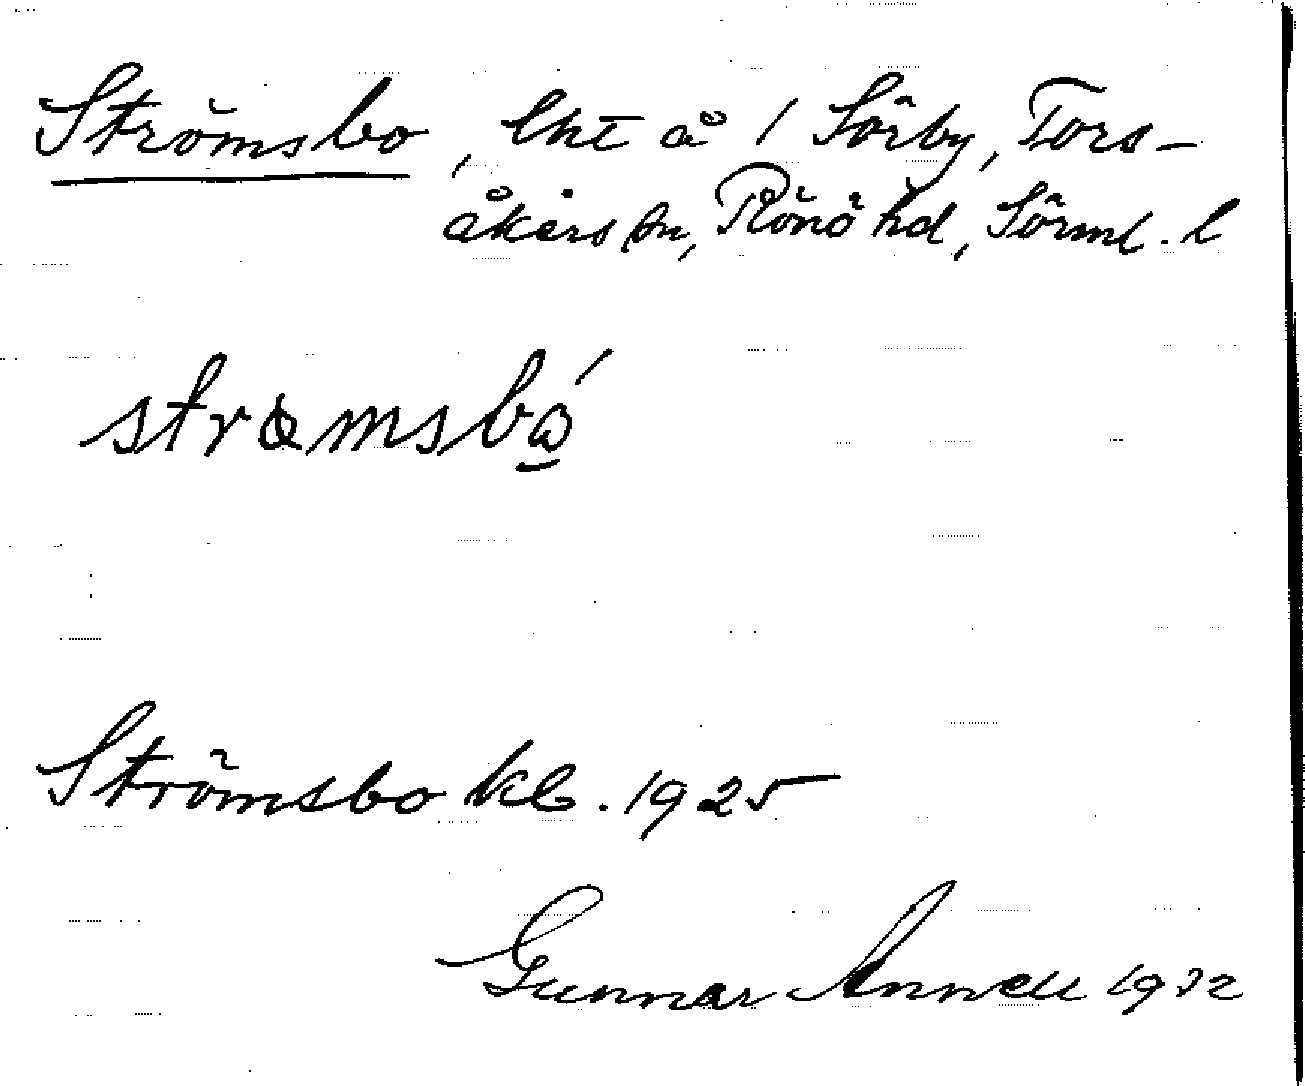 Strömsbo, lht å 1 Sörby, Tors-
åkers sn, Rönö hd, Sörml. l
strɷmsbó̲
Strömsbo kb. 1925
Gunnar Annell 1932